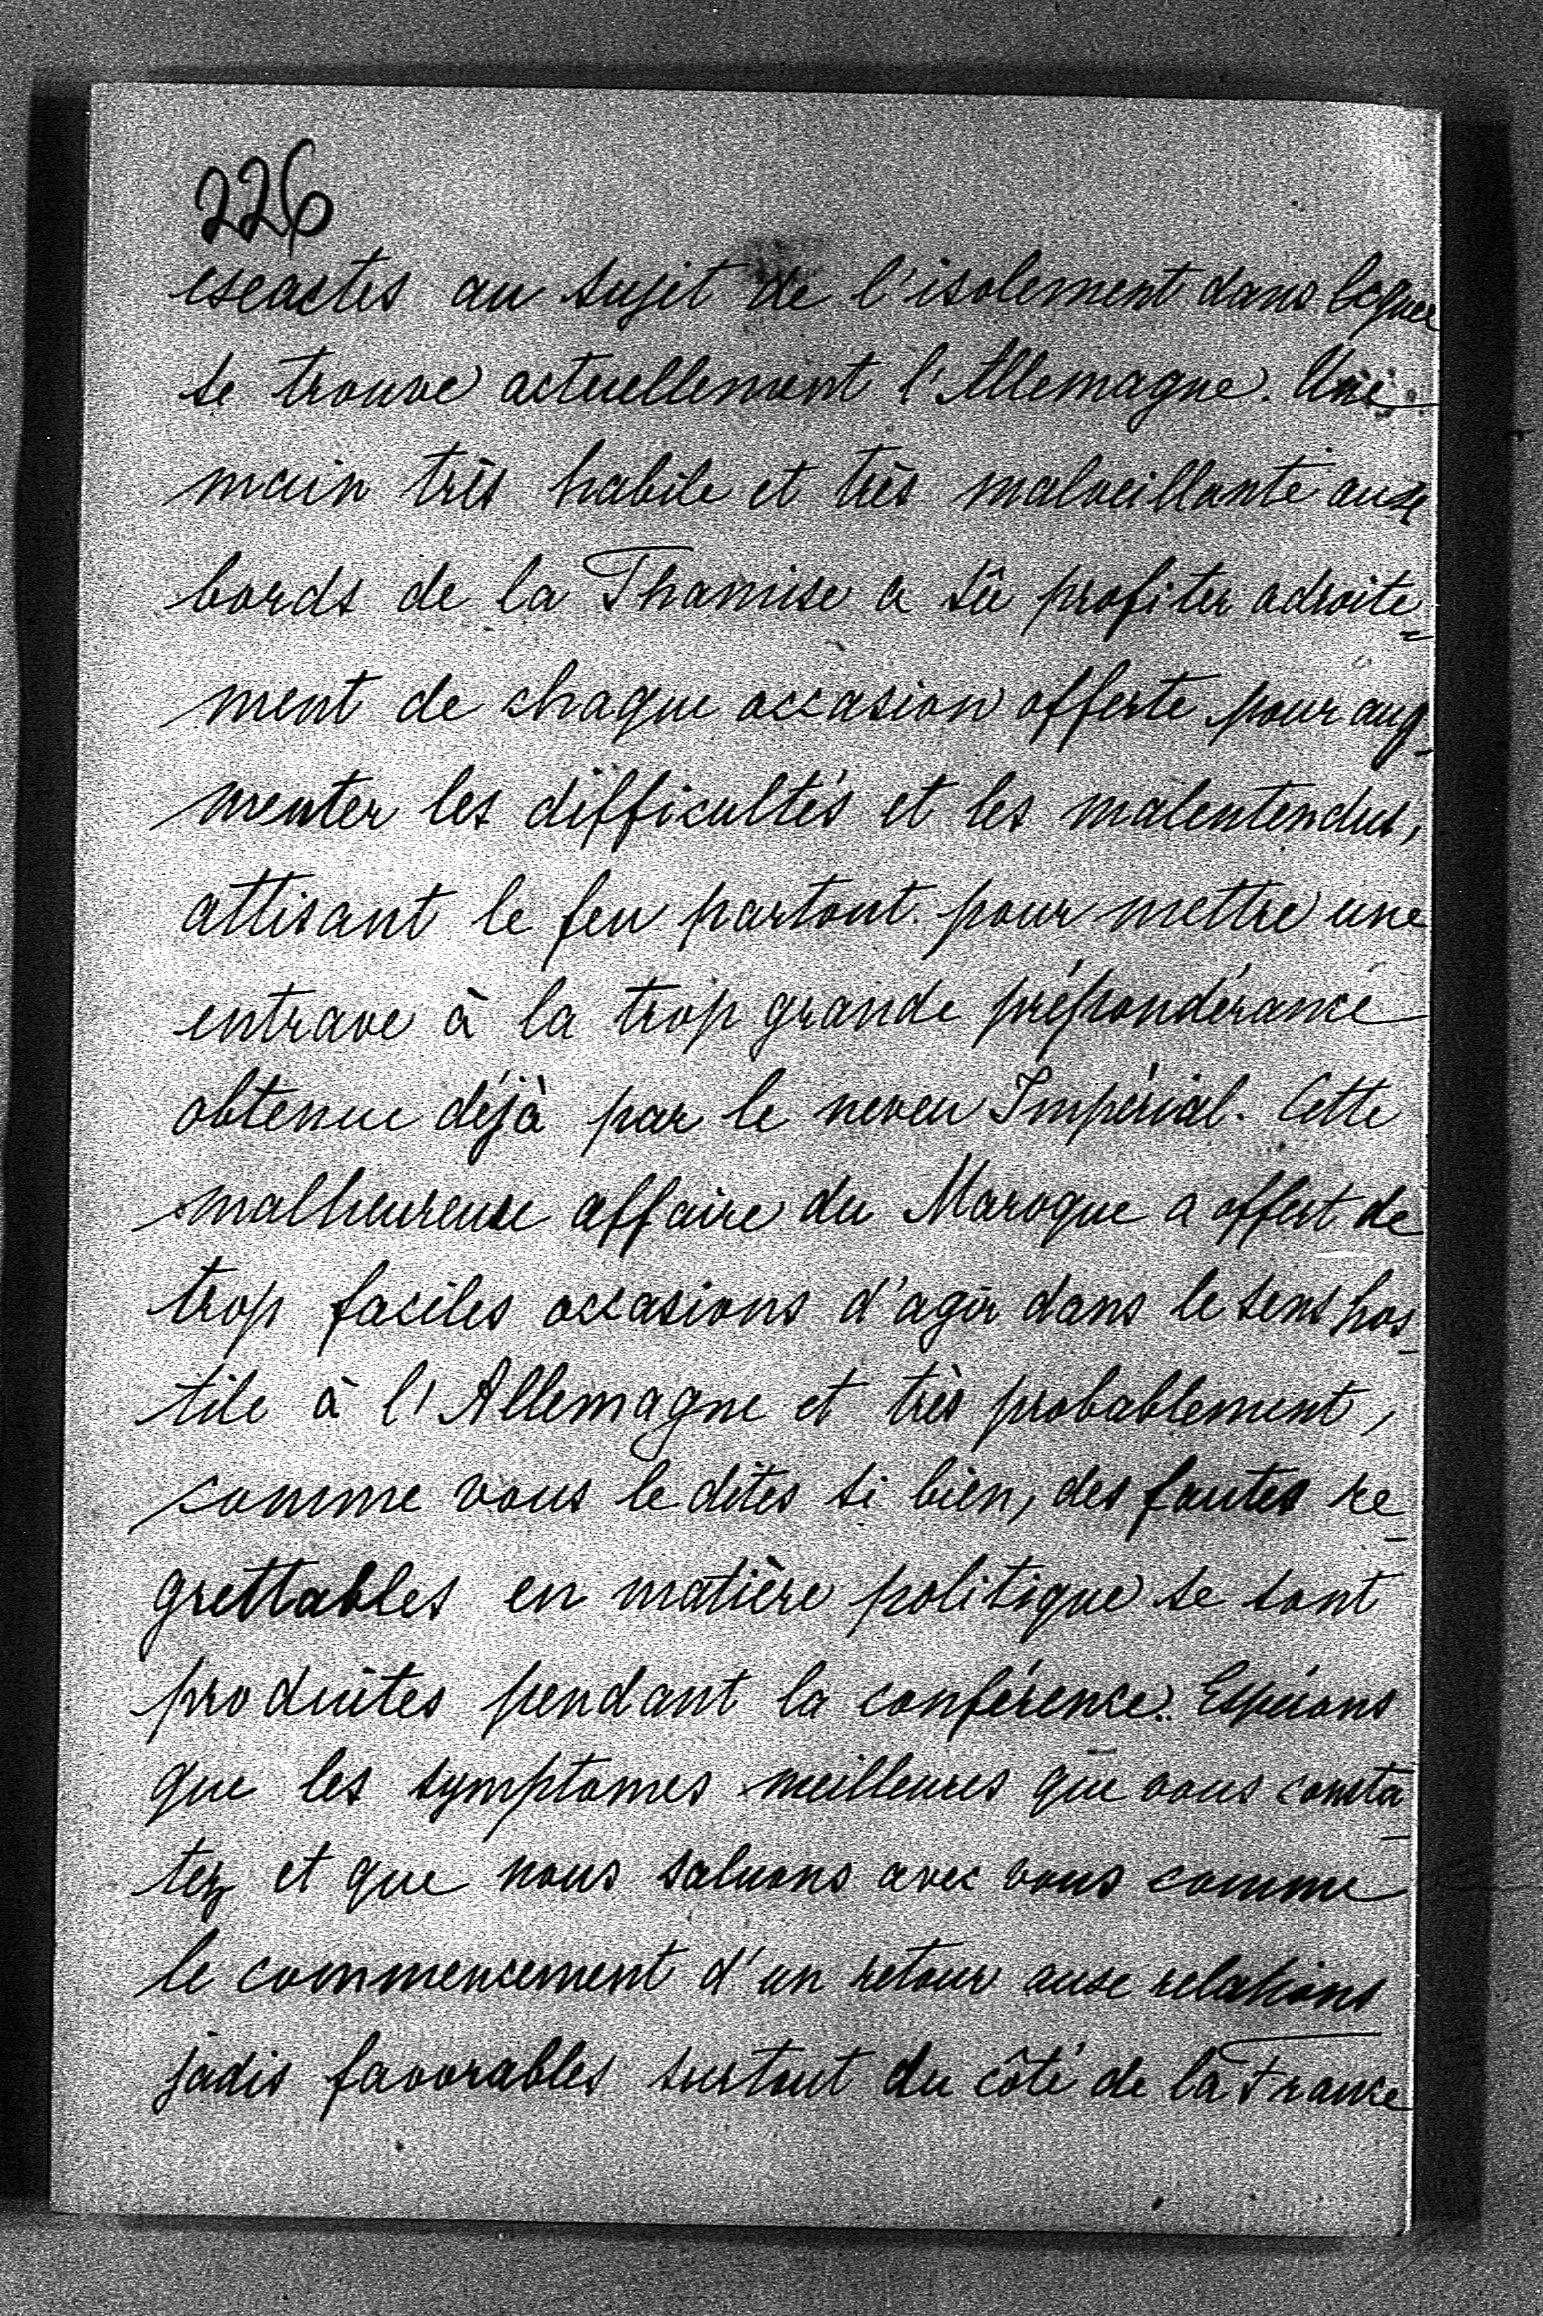 226
exactes au sujet de l'isolement dans lequel
se trouve actuellement l'Allemagne. Une
main très habile et très malveillante aux
bords de la Thamise a sû profiter adroite-
ment de chaque occasion offerte pour aug-
menter les difficultés et les malentendus,
attisant le feu partout pour mettre une
entrave à la trop grande prépondérance
obtenue déjà par le neveu Impérial. Cette
malheureuse affaire du Maroque a offert de
trop faciles occasions d'agir dans le sens hos-
tile à l'Allemagne et très probablement,
comme vous le dites si bien, des fautes re-
grettables en matière politique se sont
produites pendant la conférence. Espérons
que les symptomes meilleures que vous consta-
tez et que nous saluons avec vous comme
le commencement d'un retour aux relations
jadis favorables surtout du côté de la France